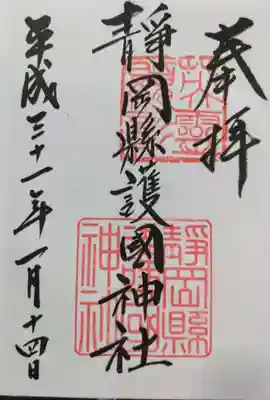 奉拝
靜岡縣護國神社
平成三十一年一月十四日
靜岡縣護國神社